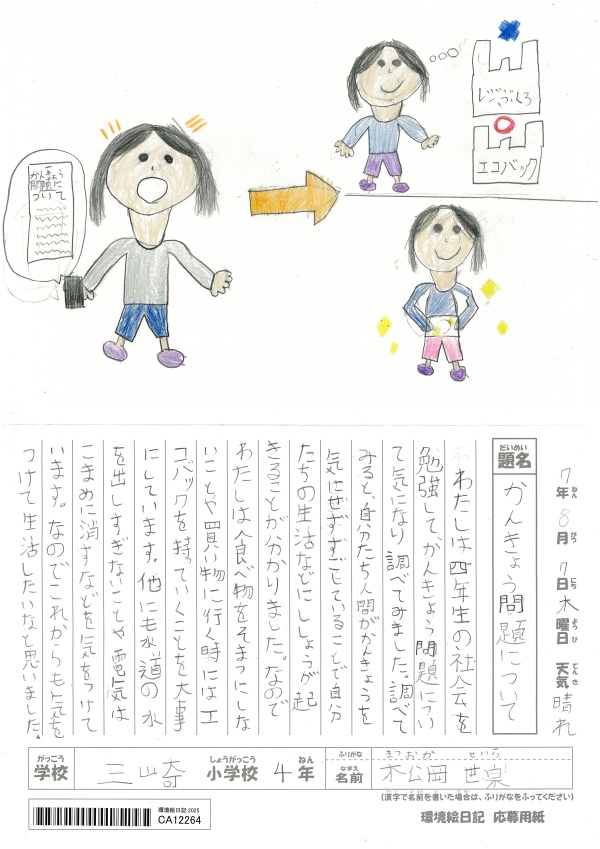 かんきょう
問題に
ついて
レジぶくろ
エコバック
7年8月7日木曜日 天気晴れ
ねん がつ にち ようび てんき
だいめい
題名 かんきょう問題について
わたしは四年生の社会を
勉強して、かんきょう問題につい
て気になり調べてみました。調べて
みると、自分たち人間がかんきょうを
気にせずすごしていることで自分
たちの生活などにししょうが起
きることが分かりました。なので
わたしは食べ物をそまつにしな
いことや買い物に行く時にはエ
コバックを持っていくことを大事
にしています。他にも水道の水
を出しすぎないことや電気は
こまめに消すなどを気をつけて
います。なのでこれからも気を
つけて生活したいなと思いました。
がっこう しょうがっこう ねん ふりがな まつおか せいら
学校 三山奇 小学校 4年 なまえ 名前 松岡
(漢字で名前を書いた場合は、ふりがなをふってください)
環境絵日記 応募用紙
環境絵日記 2025
CA12264